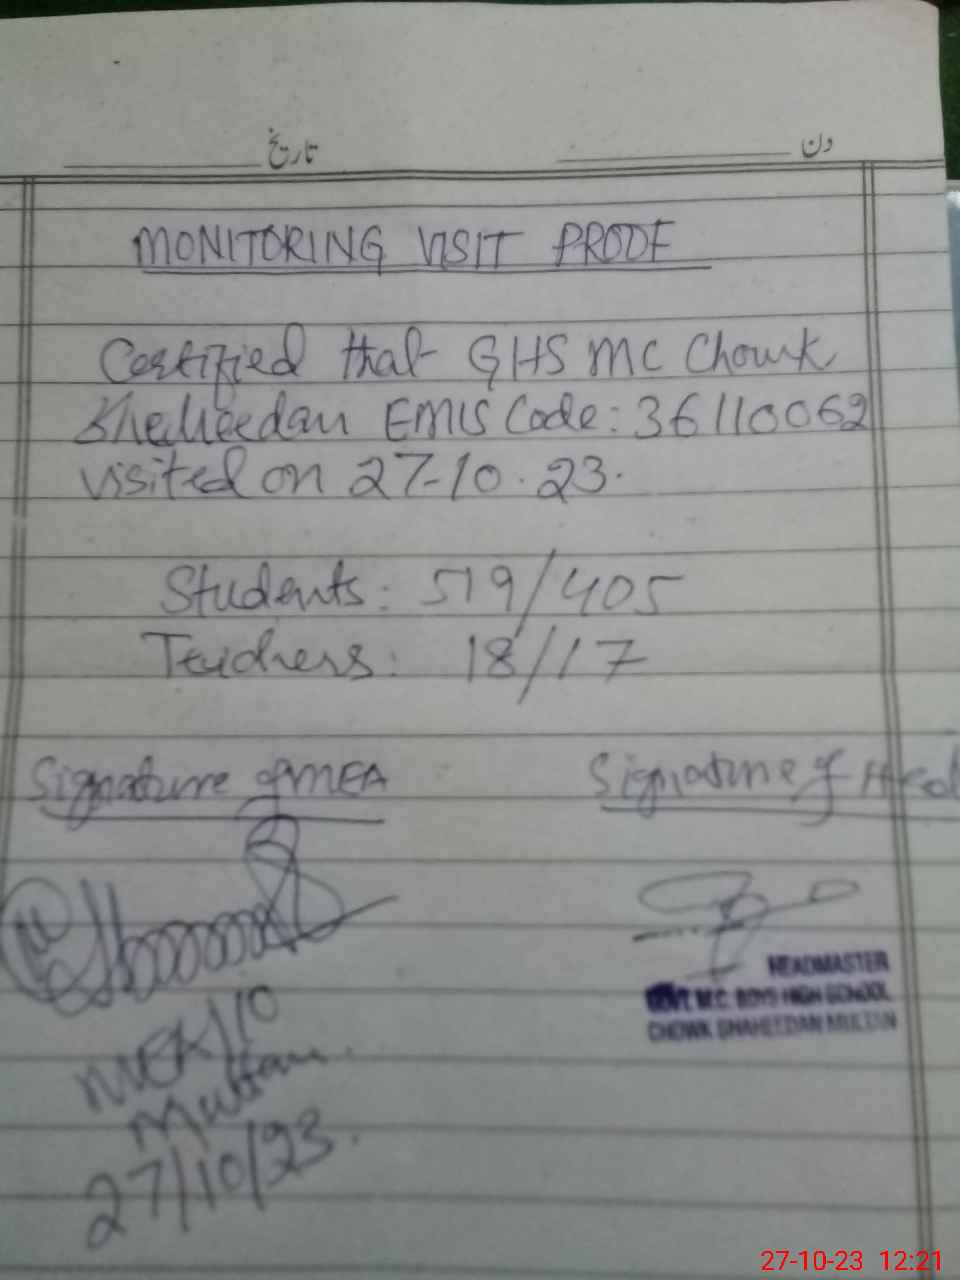 دن تاریخ
MONITORING VISIT PROOF
Certified that GHS MC Chowk
Shaheedan EMIS Code: 36110062
visited on 27-10.23.
Students: 519/405
Teachers: 18/17
Signature of MEA
Signature of Head
MEA/10
Multan.
27/10/23.
HEADMASTER
GOVT M.C. BOYS HIGH SCHOOL
CHOWK SHAHEEDAN MULTAN
27-10-23 12:21